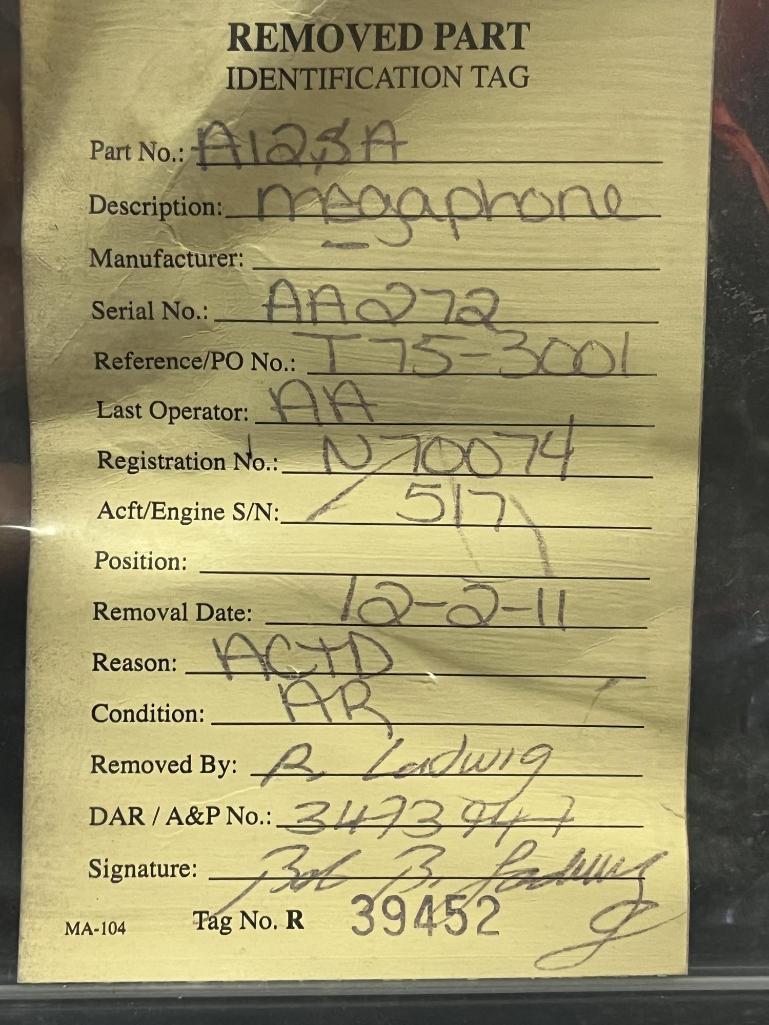 REMOVED PART
IDENTIFICATION TAG
Part No.: A12SA
Description: megaphone
Manufacturer:
Serial No.: AA272
Reference/PO No.: T75-3001
Last Operator: AA
Registration No.: N70074
Acft/Engine S/N: 517
Position:
Removal Date: 12-2-11
Reason: AC+D
Condition: AR
Removed By: R Ladwig
DAR / A&P No.: 3473947
Signature: Bob B. Ladwig
MA-104 Tag No. R 39452